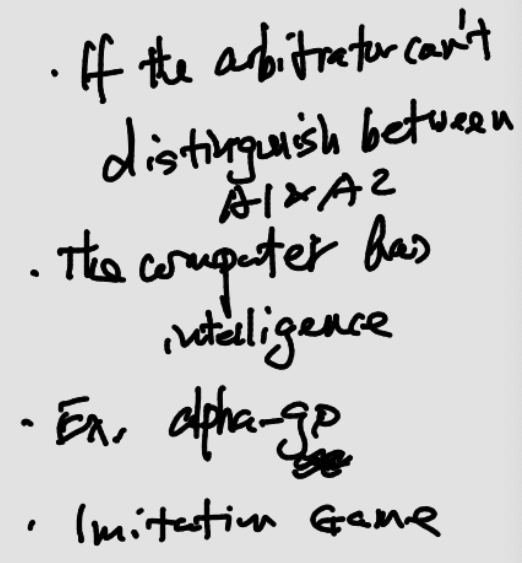 · If the arbitrator can't
distinguish between
A1 & A2
· The computer has
intelligence
· Ex. alpha-go
· Imitation Game